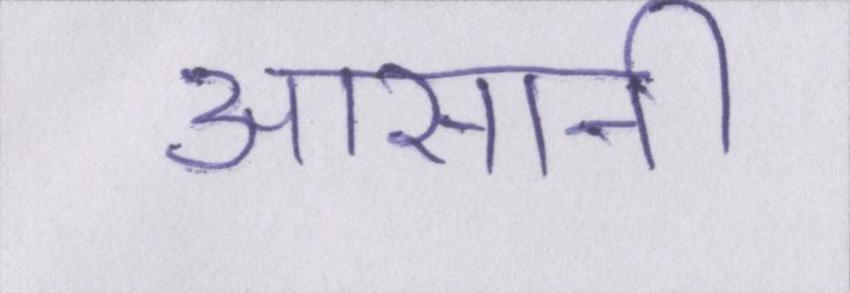 आसानी